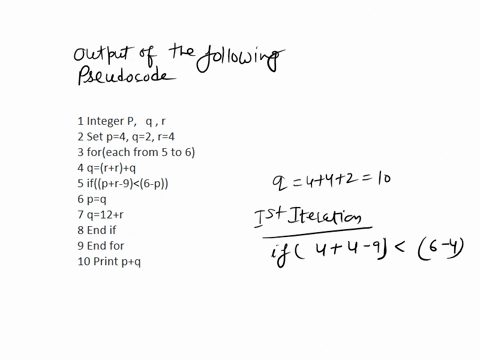 Output of the following
Pseudocode
1 Integer P, q , r
2 Set p=4, q=2, r=4
3 for(each from 5 to 6)
4 q=(r+r)+q
5 if((p+r-9)<(6-p))
6 p=q
7 q=12+r
8 End if
9 End for
10 Print p+q
q = 4+4+2 = 10
Ist Iteration
if( 4+4-9) < (6-4)